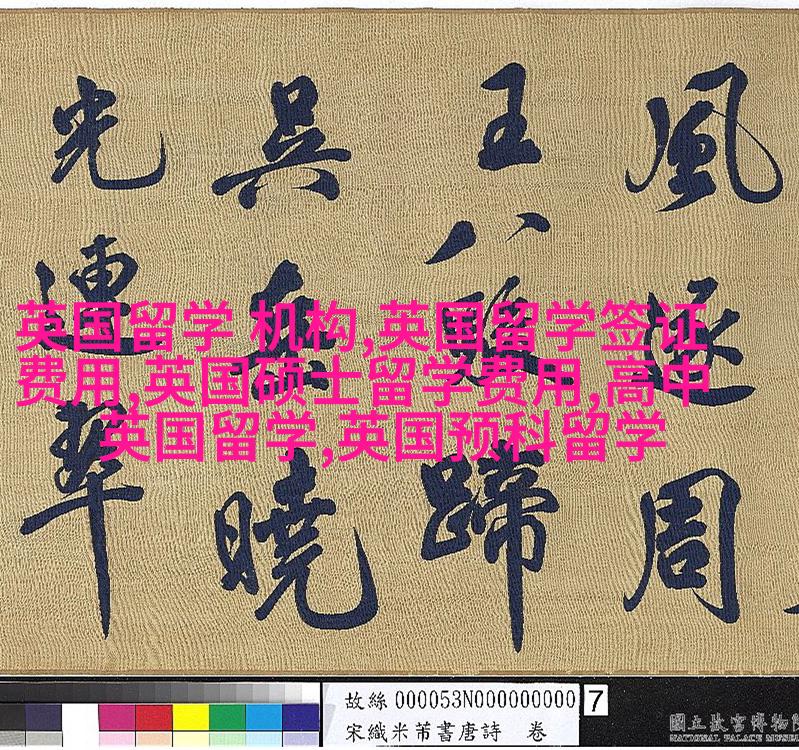 風逐周
王八駿蹄
吳岳曉
光連翠
英国留学 机构,英国留学签证
费用,英国硕士留学费用,高中
英国留学,英国预科留学
故絲 000053N000000000 7
宋織米芾書唐詩 卷
國立故宮博物院
NATIONAL PALACE MUSEUM